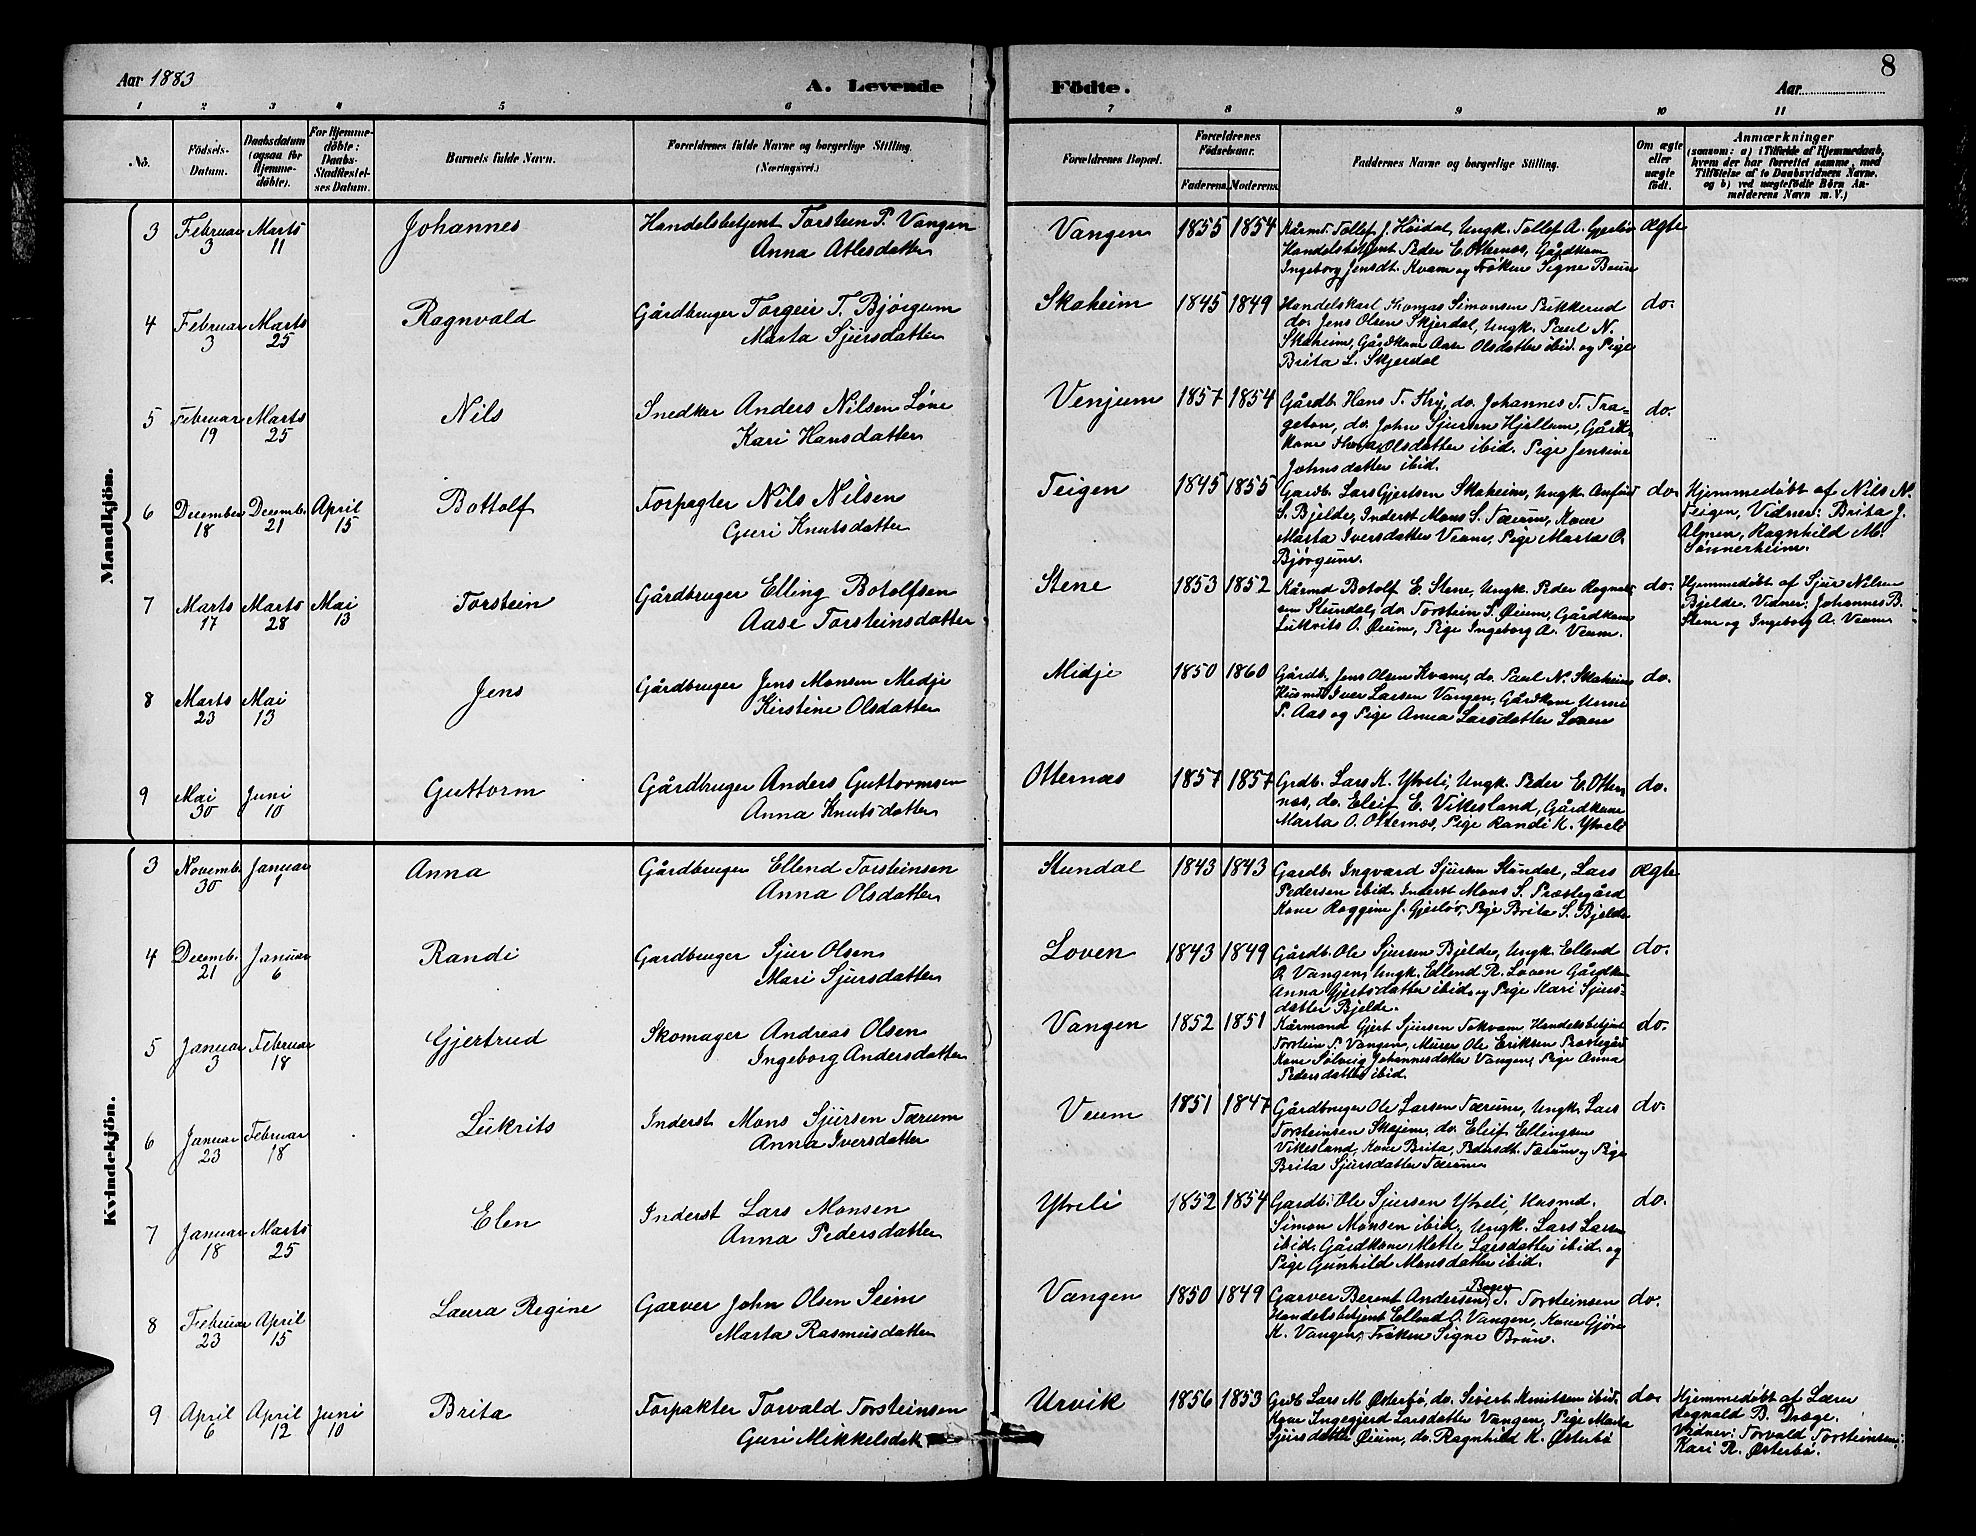 Aar 1883
A. Levende
Födte.
Aar
8
1 2 3 4 5 6 7 8 9 10 11
No.
Födsels-
Datum.
Daabsdatum
(ogsaa for
Hjemme-
döbte).
For Hjemme-
döbte:
Daabs-
Stadfæstel-
ses Datum.
Barnets fulde Navn.
Forældrenes fulde Navne og borgerlige Stilling.
(Næringsvei.)
Forældrenes Bopæl.
Forældrenes
Födselsaar.
Faderens. Moderens.
Faddernes Navne og borgerlige Stilling.
Om ægte
eller
uægte
födt.
Anmærkninger
(saasom: a) i Tilfælde af Hjemmedaab,
hvem der har forrettet samme, med
Tilföielse af to Daabsvidners Navne.
og b) ved uægtefödte Börn An-
melderens Navn m. V.)
Mandkjön.
3 Februar 3 Marts 11 Johannes
Handelsbetjent Torstein P. Vangen
Anna Atlesdatter
Vangen 1855 1854
Kårmd. Tollef J. Höidal, Ungk. Tollef A. Gjerløv
Handelsbetjent Peder E. Otternes, Gårdkone
Ingeborg Jensdt. Kvam og Frøken Signe Brun
ægte
4 Februar 3 Marts 25 Ragnvald
Gårdbruger Torgeir T. Bjørgum
Marta Sjursdatter
Skaheim 1845 1849
Handelskarl Thomas Simonsen Bukkerud
do. Jens Olsen Skjerdal, Ungk. Paul N.
Skaheim, Gårdkone Aase Olsdatter ibid. og Pige
Brita L. Skjerdal
do.
5 Februar 19 Marts 25 Nils
Snedker Anders Nilsen Løne
Kari Hansdatter
Venjum 1857 1854
Gårdb. Hans T. Hry, do. Johannes T. Tra-
geton, do. John Sjursen Hjellum, Gård-
kone Thora Olsdatter ibid. Pige Jensine
Johnsdatter ibid.
do.
6 December 18 Decemb. 21 April 15 Bottolf
Forpagter Nils Nilsen
Guri Knutsdatter
Teigen 1845 1855
Gardb. Lars Gjertsen Skaheim, Ungk. Anfind
S. Bjelde, Inderst Mons S. Tærum, Kone
Marta Iversdatter Veum, Pige Marta O.
Bjørgum.
do.
Hjemmedøbt af Nils N.
Teigen, Vidner: Brita J.
Almen, Ragnhild M.
Sønnerheim.
7 Marts 17 Marts 28 Mai 13 Torstein
Gårdbruger Elling Botolfsen
Aase Torsteinsdatter
Stene 1853 1852
Kårmd Botolf E. Stene, Ungk. Peder Rognald-
sen Stundal, do. Torstein S. Øium, Gårdkone
Lukrits O. Øium, Pige Ingeborg A. Veum.
do.
Hjemmedøbt af Sjur Nilsen
Bjelde. Vidner: Johannes B.
Stene og Ingeborg A. Veum
8 Marts 23 Mai 13 Jens
Gårdbruger Jens Monsen Midje
Kirstine Olsdatter
Midje 1850 1860
Gårdb. Jens Olsen Kvam, do. Paul N. Skaheim
Husmd Iver Larsen Vangen, Gårdkone Unni
P. Aas og Pige Anna Larsdatter Loven
do.
9 Mai 30 Juni 10 Guttorm
Gårdbruger Anders Guttormsen
Anna Knutsdatter
Otternæs 1857 1857
Grdb. Lars K. Ytreli, Ungk. Peder E. Otter-
næs, do. Eleif E. Vikesland, Gårdkone
Marta O. Otternæs, Pige Randi K. Ytreli
do.
Kvindekjön.
3 Novemb. 30 Januar 1 Anna
Gårdbruger Ellend Torsteinsen
Anna Olsdatter
Stundal 1843 1843
Gardb. Ingvard Sjursen Stundal, Lars
Pedersen ibid. Inderst Mons S. Præstegård
Kone Raggine J. Gjerløv, Pige Brita S. Bjelde
ægte
4 Decemb. 21 Januar 6 Randi
Gardbruger Sjur Olsen
Mari Sjursdatter
Loven 1843 1849
Gårdb. Ole Sjursen Bjelde, Ungk. Ellend
O. Vangen, Ungk. Ellend R. Loven Gårdkone
Anna Gjertsdatter ibid. og Pige Kari Sjurs-
datter Bjelde.
do.
5 Januar 3 Februar 18 Gjertrud
Skomager Andreas Olsen
Ingeborg Andersdatter
Vangen 1852 1851
Kårmand Gjert Sjursen Tokvam, Handelsbetjent
Torstein P. Vangen, Murer Ole Eriksen Præstegård
Kone Sølveig Johannesdatter Vangen, Pige Anna
Pedersdatter ibid.
do.
6 Januar 23 Februar 18 Lukrits
Inderst Mons Sjursen Tærum
Anna Iversdatter
Veum 1851 1847
Gårdbruger Ole Larsen Tærum, Ungk. Lars
Torsteinsen Skajem, do. Eleif Ellingsen
Vikesland, Kone Brita Pedersdt. Tærum og Pige
Brita Sjursdatter Tærum.
do.
7 Januar 18 Marts 25 Elen
Inderst Lars Monsen
Anna Pedersdatter
Ytreli 1852 1854
Gardb. Ole Sjursen Ytreli, Husmd.
Simon Monsen ibid, Ungk. Lars Larsen
ibid. Gårdkone Mette Larsdatter ibid. og
Pige Gunhild Monsdatter ibid.
do.
8 Februar 23 April 15 Laura Regine
Garver John Olsen Seim
Marta Rasmusdatter
Vangen 1850 1849
Garver Berent Andersen, Bager T. Torsteinsen
Handelsbetjent Ellend O. Vangen, Kone Gjøri
K. Vangen, Frøken Signe Brun.
do.
9 April 6 April 12 Juni 10 Brita
Forpakter Torvald Torsteinsen
Guri Mikkelsdat
Urvik 1856 1853
Grdb. Lars M. Østerbø, do. Sivert Knutsen ibid.
Kone Ingegjerd Larsdatter Vangen, Pige Marta
Sjursdatter Øium, do. Ragnhild K. Østerbø
do.
Hjemmedøbt af Lærer
Rognald B. Dræge.
Vidner: Torvald Torsteinsen,
Kari R. Østerbø.